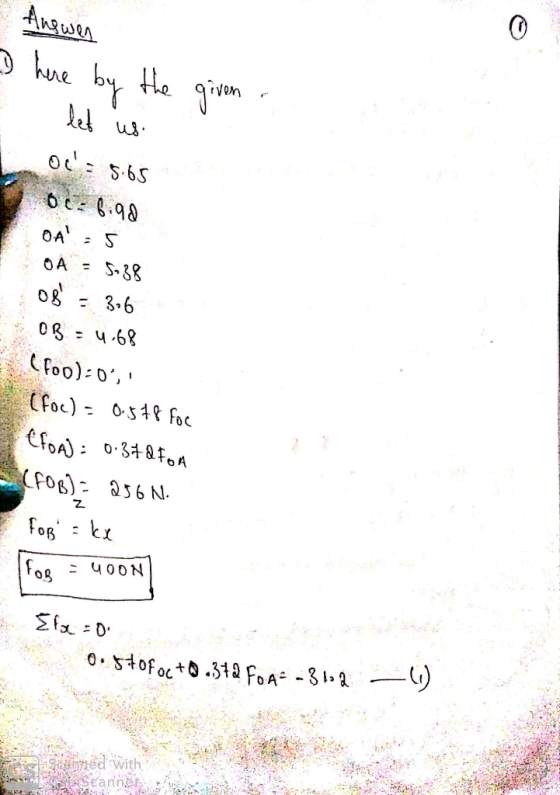 Answer
①
① here by the given -
let us.
OC' = 5.65
OC = 6.98
OA' = 5
OA = 5.38
OB' = 3.6
OB = 4.68
(FOD) = 0',
(FOC) = 0.578 FOC
(FOA) = 0.372 FOA
(FOB)z = 256 N.
FOB' = kx
FOB = 400N
Σfx = 0.
0.570 FOC + 0.372 FOA = -31.2 —(1)
Scanned with
Scanner